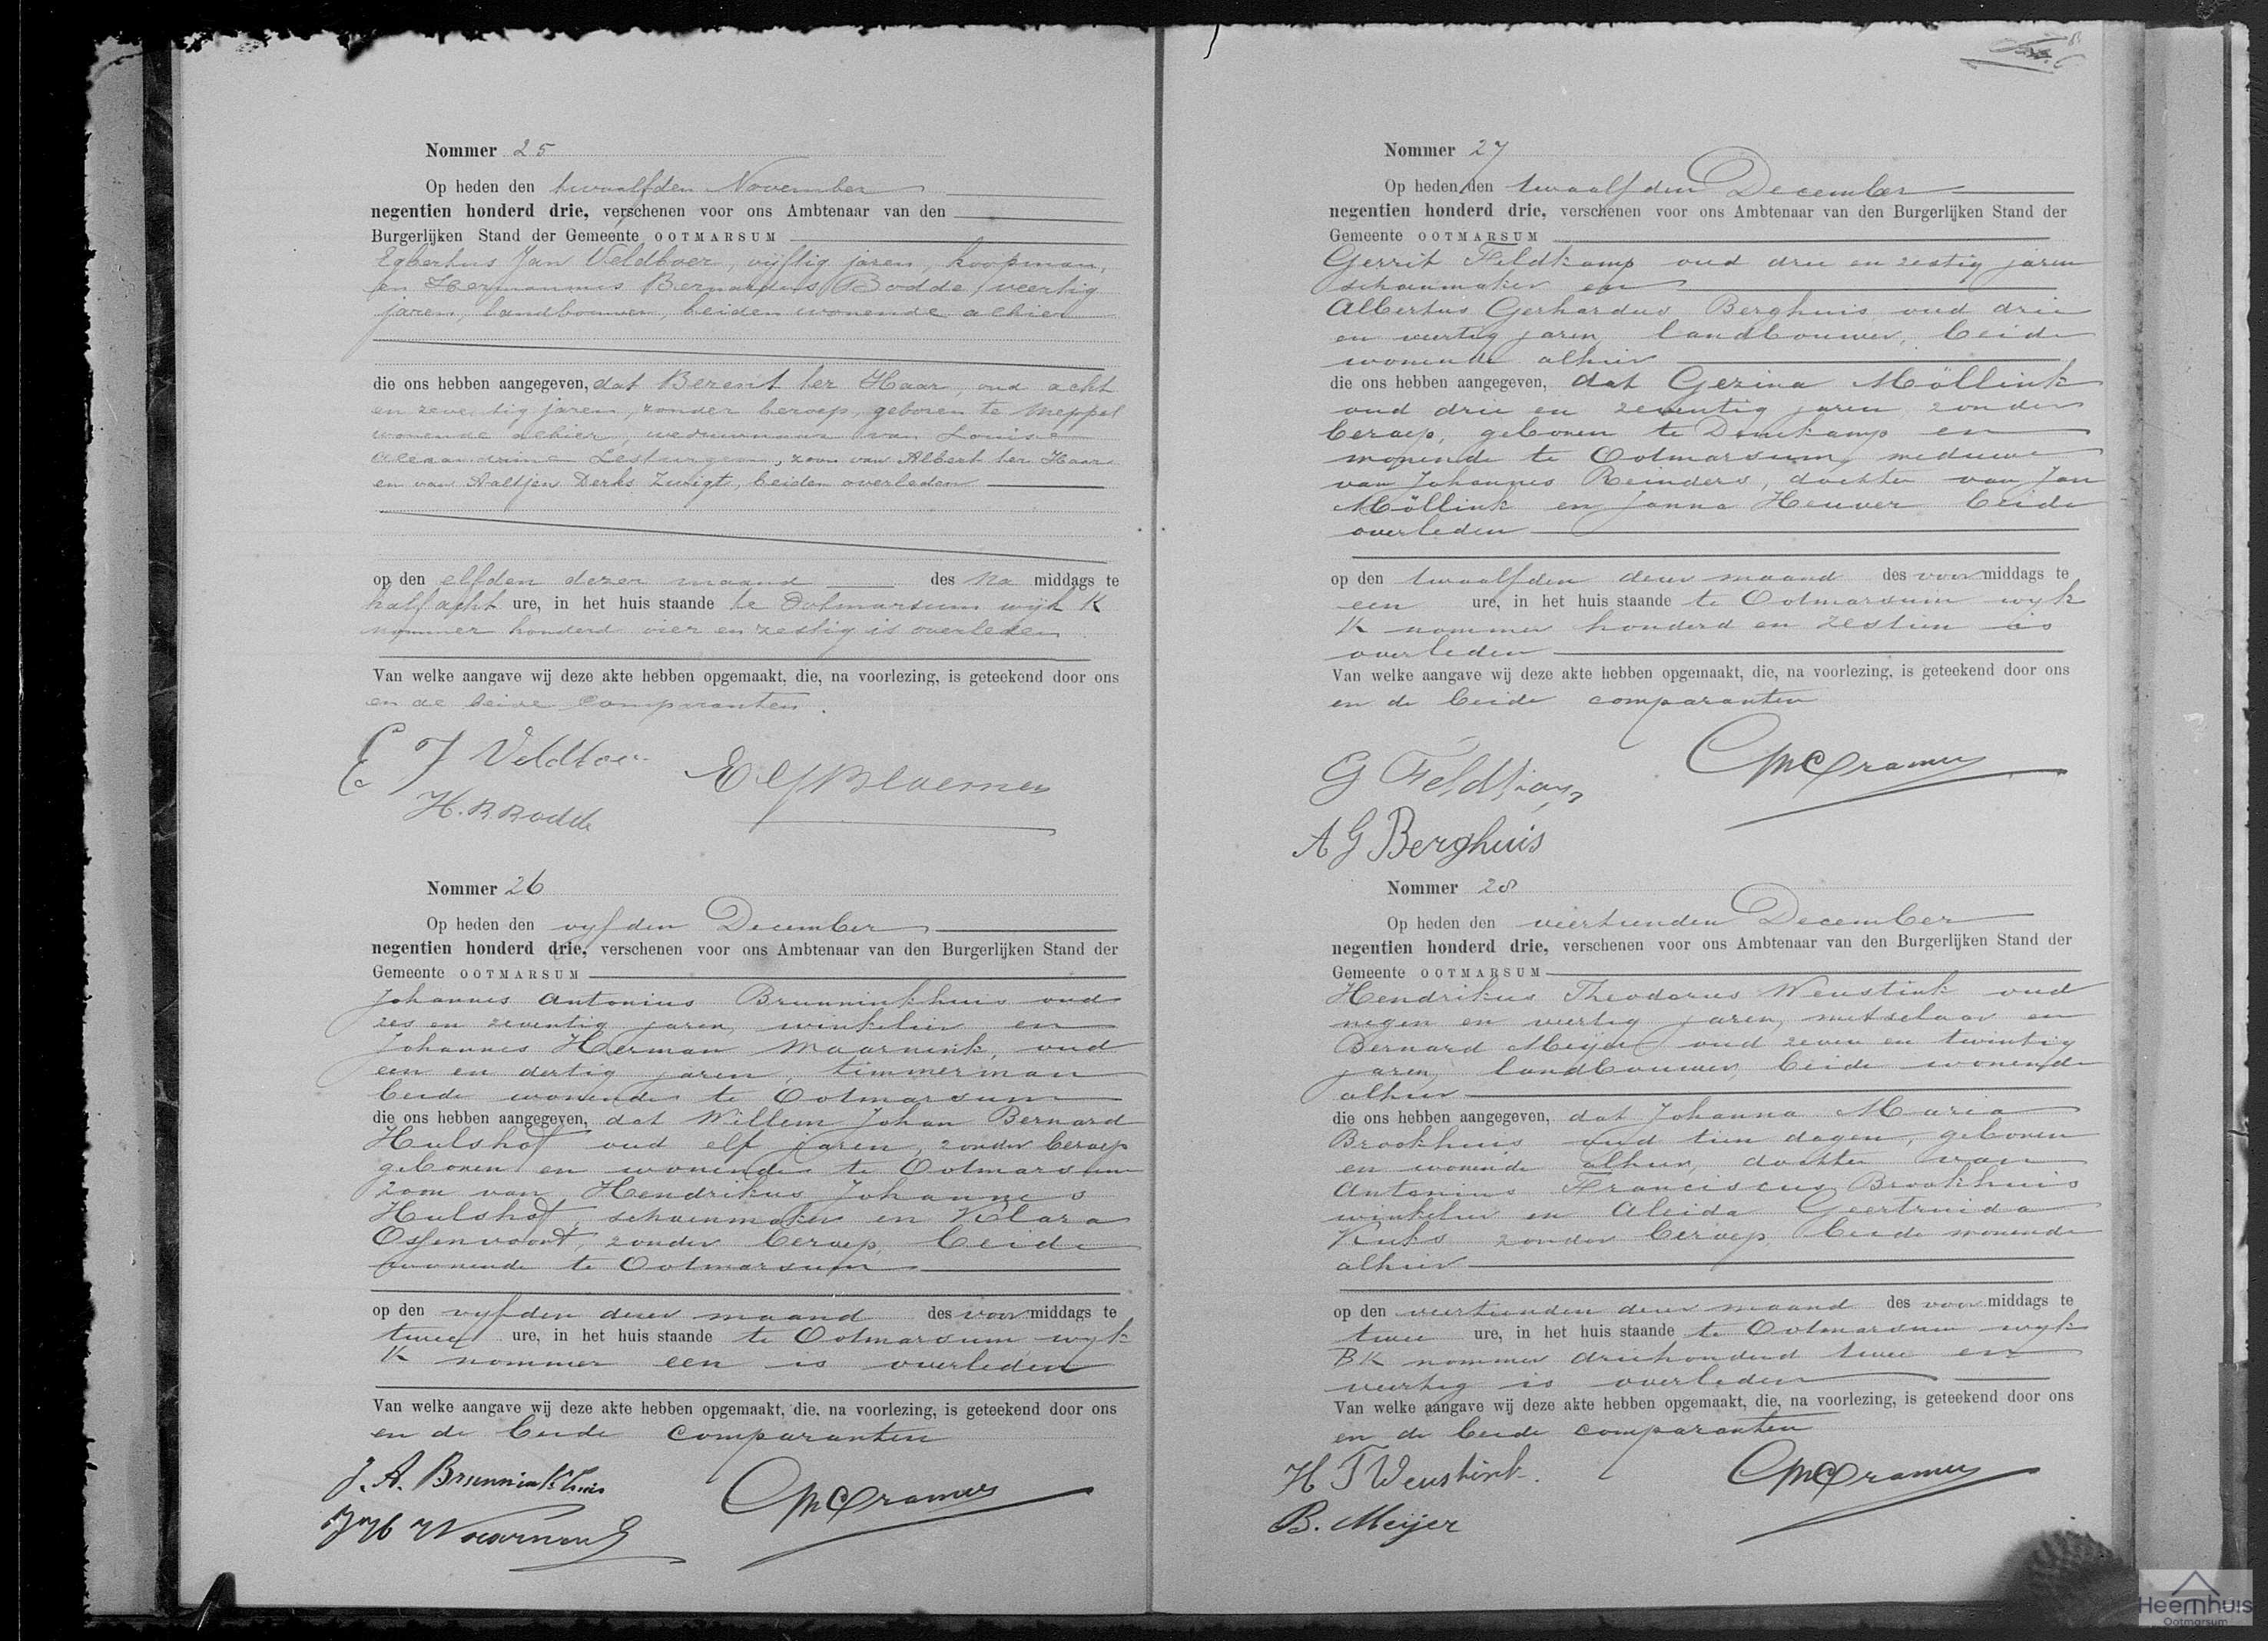 Nommer 25
Op heden den twaalfden November
negentien honderd drie, verschenen voor ons Ambtenaar van den
Burgerlijken Stand der Gemeente OOTMARSUM
Egbertus Jan Veldboer, vijftig jaren, koopman,
en Hermannus Bernardus Bodde, veertig
jaren, landbouwer, beiden wonende alhier
die ons hebben aangegeven, dat Berent ter Haar, oud acht
en zeventig jaren, zonder beroep, geboren te Meppel
wonende alhier, weduwnaar van Louise
Lesturgeon, zoon van Albert ter Haar
en van Aaltjen Derks Zwigt, beiden overleden
op den elfden dezer maand des na middags te
half acht ure, in het huis staande te Ootmarsum wijk K
nommer honderd vier en zestig is overleden
Van welke aangave wij deze akte hebben opgemaakt, die, na voorlezing, is geteekend door ons
en de beide comparanten.
E J Veldboer
H. B. Bodde
Nommer 26
Op heden den vyfden December
negentien honderd drie, verschenen voor ons Ambtenaar van den Burgerlijken Stand der
Gemeente OOTMARSUM
Johannes Antonius Brunninkhuis oud
zes en zeventig jaren, winkelier en
Johannes Herman Maarnink, oud
een en dertig jaren, timmerman
beide wonende te Ootmarsum
die ons hebben aangegeven, dat Willem Johan Bernard
Hulshof oud elf jaren, zonder beroep
geboren en wonende te Ootmarsum
zoon van Hendrikus Johannes
Hulshof, schoenmaker en Klara
Ossenvoort, zonder beroep, beide
wonende te Ootmarsum
op den vyfden dezer maand des voor middags te
twee ure, in het huis staande te Ootmarsum wyk
K nommer een is overleden
Van welke aangave wij deze akte hebben opgemaakt, die, na voorlezing, is geteekend door ons
en de beide comparanten
J. A. Brunninkhuis
CM Cramer
JH
Nommer 27
Op heden den twaalfden December
negentien honderd drie, verschenen voor ons Ambtenaar van den Burgerlijken Stand der
Gemeente OOTMARSUM
Gerrit Feldkamp oud drie en zestig jaren
schoenmaker en
Albertus Gerhardus Berghuis oud drie
en veertig jaren, landbouwer, beide
wonende alhier
die ons hebben aangegeven, dat Gezina Möllink
oud drie en zeventig jaren zonder
beroep, geboren te Denekamp en
wonende te Ootmarsum, weduwe
van Johannes Reinders, dochter van Jan
Möllink en Janna Heuver beide
overleden
op den twaalfden dezer maand des voor middags te
een ure, in het huis staande te Ootmarsum wyk
K nommer honderd en zestien is
overleden
Van welke aangave wij deze akte hebben opgemaakt, die, na voorlezing, is geteekend door ons
en de beide comparanten
G Feldkamp
CM Cramer
A G Berghuis
Nommer 28
Op heden den viertienden December
negentien honderd drie, verschenen voor ons Ambtenaar van den Burgerlijken Stand der
Gemeente OOTMARSUM
Hendrikus Theodorus Weustink oud
negen en veertig jaren, metselaar en
Bernard Meijer oud zeven en twintig
jaren, landbouwer, beide wonende
alhier
die ons hebben aangegeven, dat Johanna Maria
Brookhuis oud tien dagen, geboren
en wonende alhier, dochter van
Antonius Franciscus Brookhuis
winkelier en Aleida Geertruida
Kuks zonder beroep, beide wonende
alhier
op den viertienden dezer maand des voor middags te
twee ure, in het huis staande te Ootmarsum wyk
BK nommer driehonderd twee en
veertig is overleden
Van welke aangave wij deze akte hebben opgemaakt, die, na voorlezing, is geteekend door ons
en de beide comparanten
H T Weustink.
CM Cramer
B. Meijer
Heemhuis
Ootmarsum